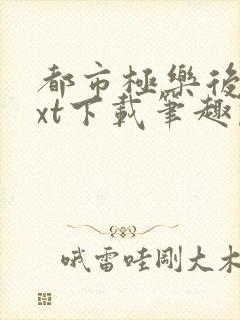 都市極樂後
xt下載筆趣
哦雷哇剛大木